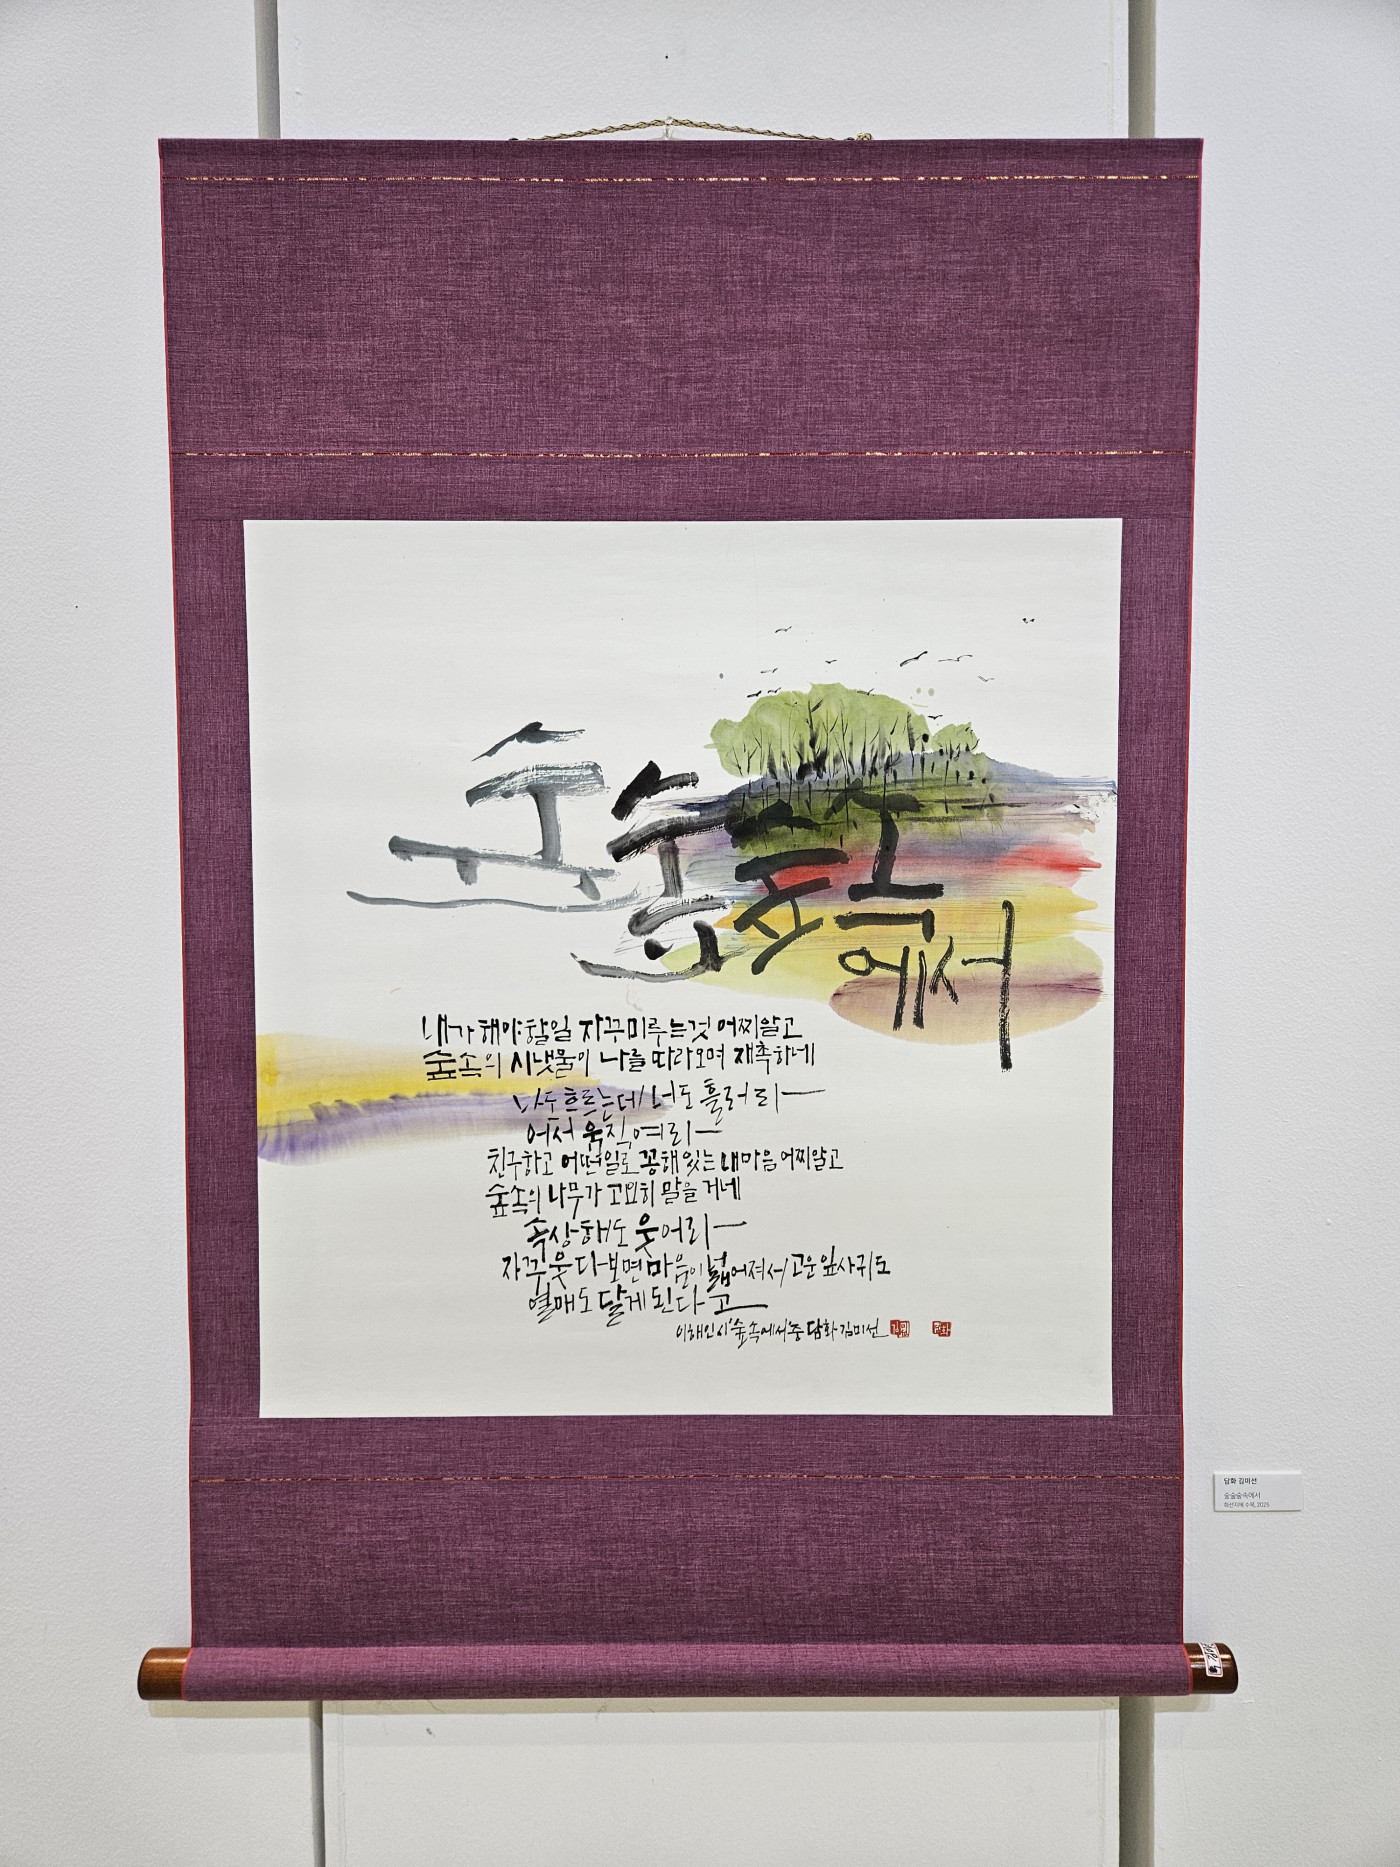 숲숲숲속
에서
내가 해야 할일 자꾸 미루는것 어찌알고
숲속의 시냇물이 나를 따라오며 재촉하네
나도 흐르는데/너도 흘러리
어서 움직여리
친구하고 어떤일로 꽁해있는 내마음 어찌알고
숲속의 나무가 고요히 말을 거네
속상해도 웃어리
자꾸 웃다보면 마음이 넓어져서/고운 잎사귀도
열매도 달게된다고
이해인 시 숲속에서 중 담화 김미선
담화 김미선
숲숲숲속에서
화선지에 수묵, 2025